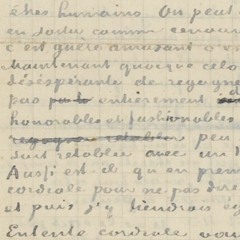 êtres humains On peut
en sortir comme
c'est guère amusant
Maintenant quoique cela
désespérante de regagne
pas entièrement
honorables et fashionables
peu
soit retablie avec un
Aussi est il qu en pren
cordiale pour ne pas dire
et puis j'y tiendrais
Entente cordiale vou